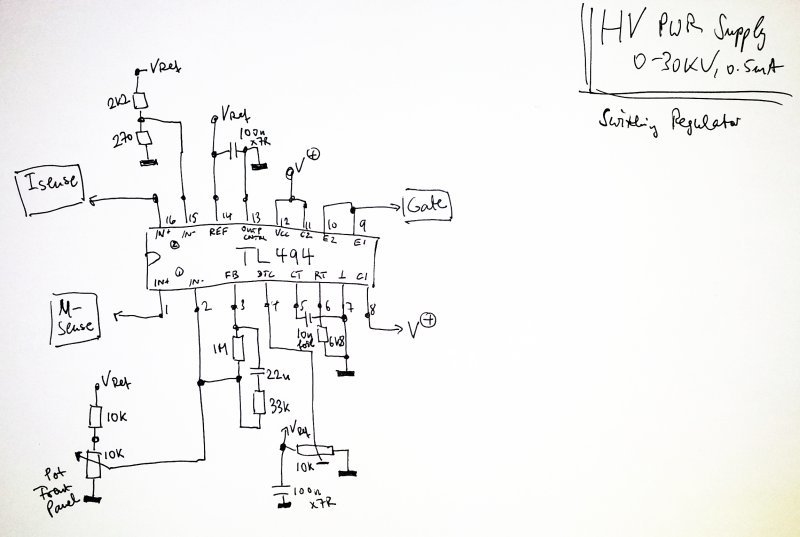 HV PWR Supply
0-30KV, 0.5mA
Switching Regulator
VRef
2k2
270
VRef
100n
X7R
V+
Isense
Gate
16 15 14 13 12 11 10 9
IN+ IN- REF OUTP CNTRL VCC C2 E2 E1
2
TL 494
1
IN+ IN- FB DTC CT RT ⊥ C1
1 2 3 4 5 6 7 8
M-
Sense
V+
10n
6V8
1M
22n
33K
VRef
10K
10K
Pot
Front
Panel
VRef
10K
100n
X7R